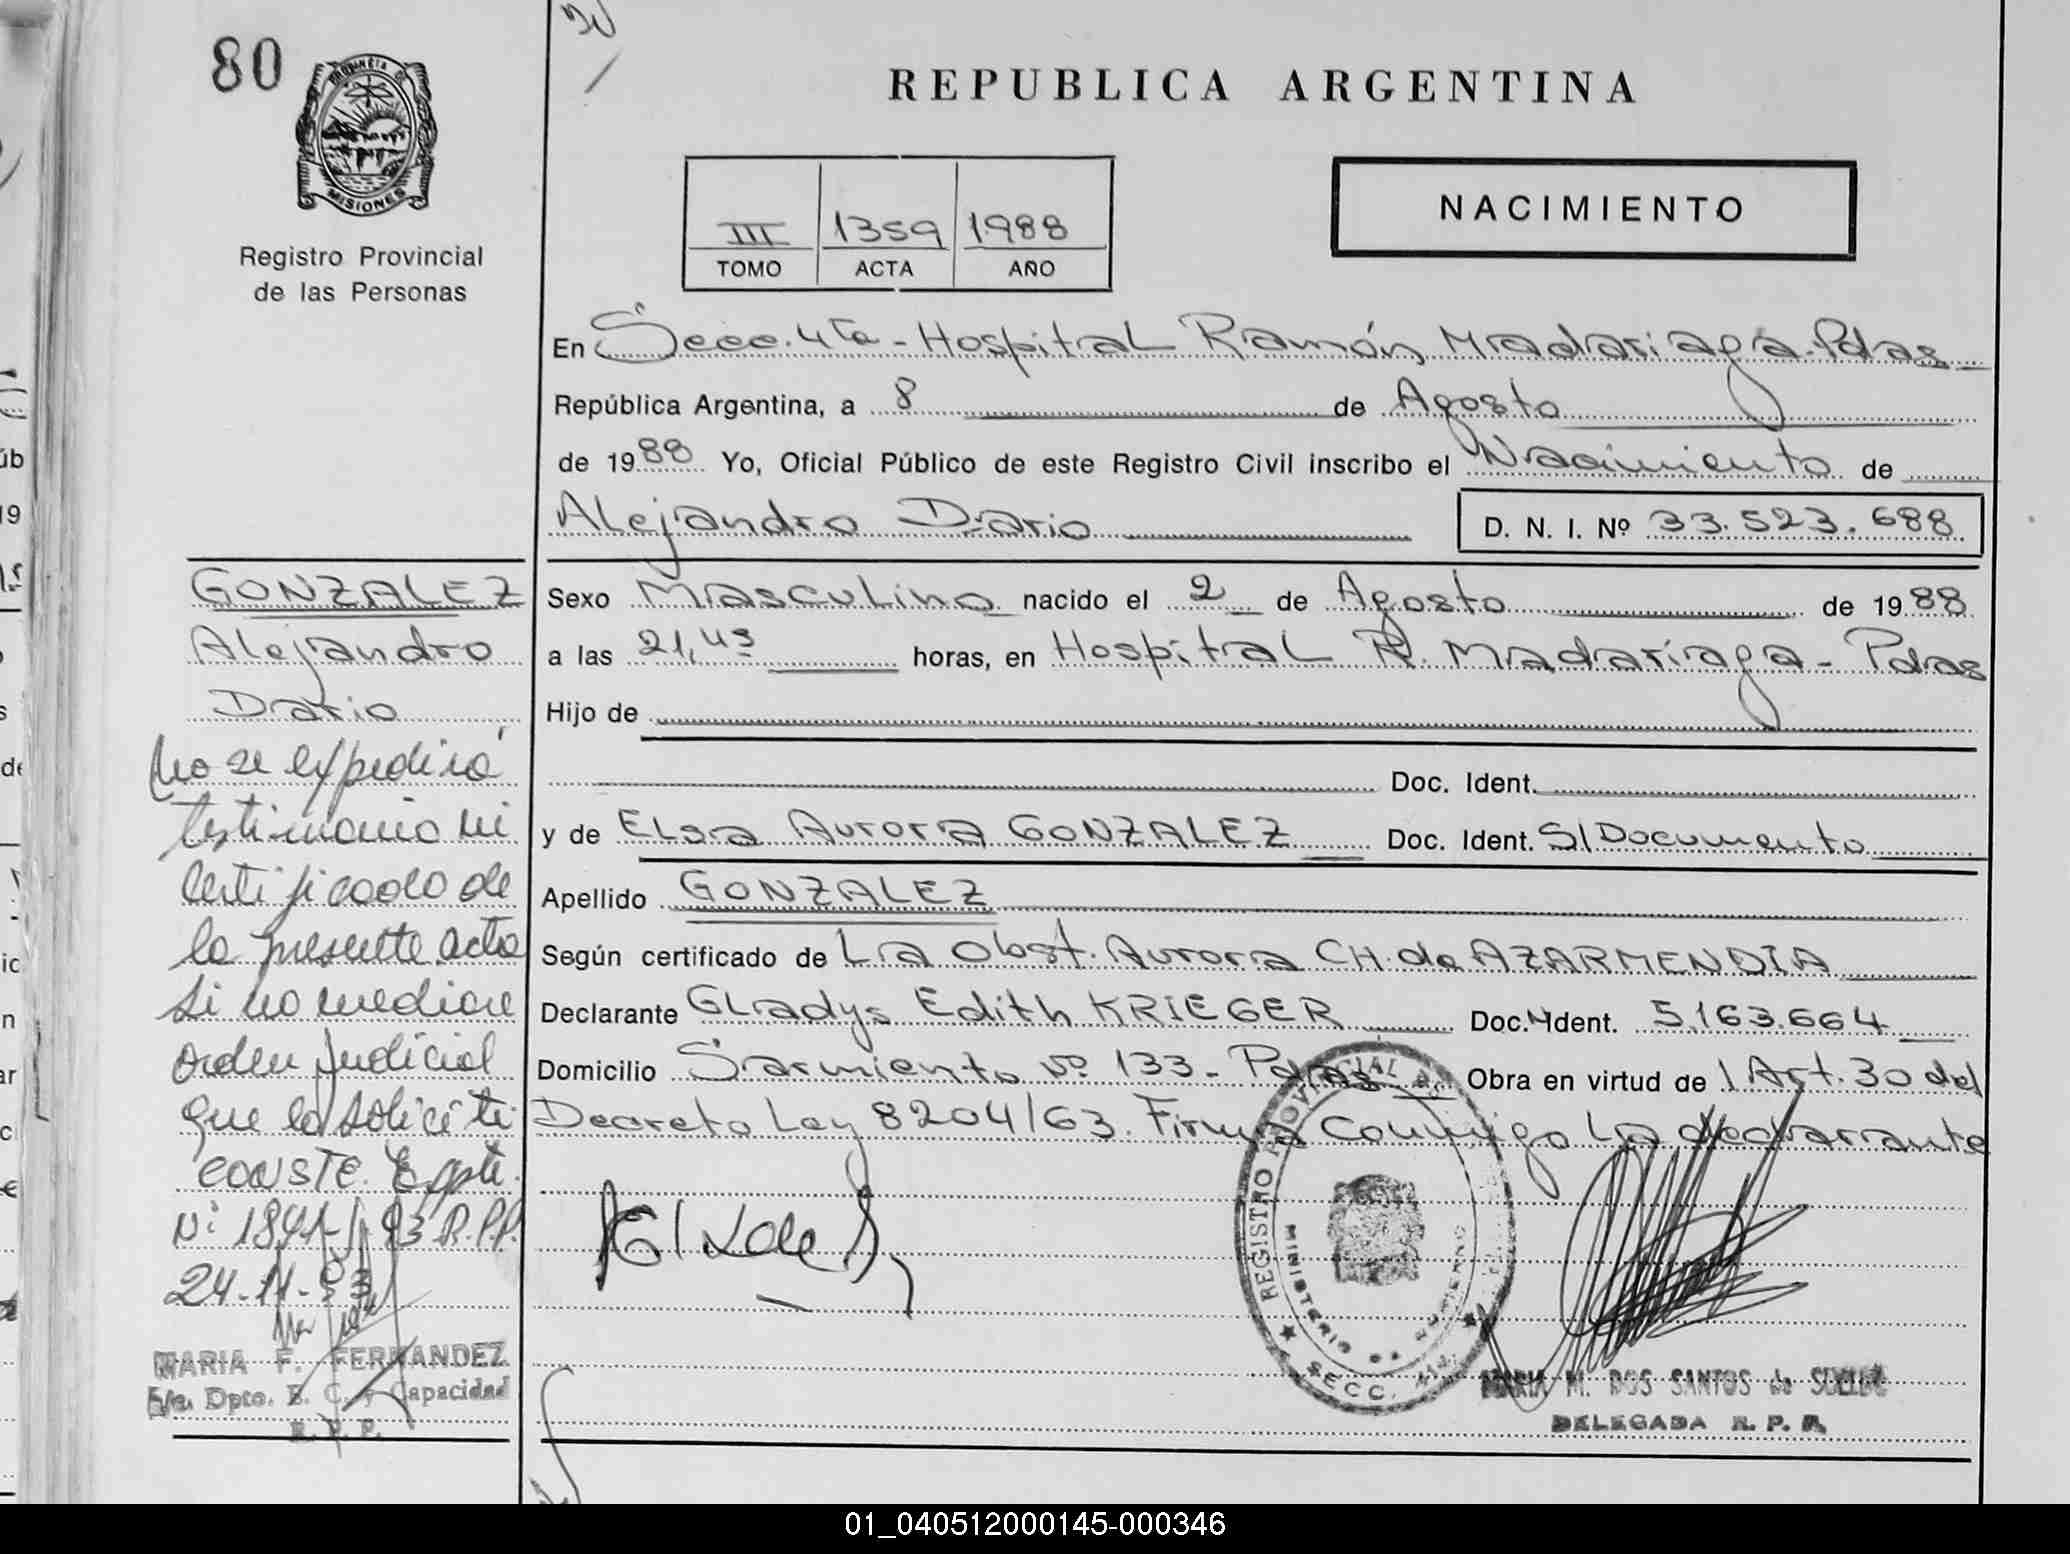 80
PROVINCIA DE
MISIONES
Registro Provincial
de las Personas
REPUBLICA ARGENTINA
III 1359 1988
TOMO ACTA AÑO
NACIMIENTO
En Secc. 4ta - Hospital Ramón Madariaga - Pdas
República Argentina, a 8 de Agosto
de 1988 Yo, Oficial Público de este Registro Civil inscribo el Nacimiento de
Alejandro Dario D. N. I. Nº 33.523.688
Sexo Masculino nacido el 2 de Agosto de 1988
a las 21,43 horas, en Hospital R. Madariaga - Pdas
Hijo de
Doc. Ident.
y de Elsa Aurora GONZALEZ Doc. Ident. S/Documento
Apellido GONZALEZ
Según certificado de La Obst. Aurora CH. de AZARMENDIA
Declarante Gladys Edith KRIEGER Doc. Ident. 5.163.664
Domicilio Sarmiento Nº 133 - Pdas Obra en virtud de l Art. 30 del
Decreto Ley 8204/63. Firma Conmigo La declarante
GONZALEZ
Alejandro
Dario
No se expedirá
testimonio ni
certificado de
la presente acta
si no mediare
orden judicial
que lo solicite
CONSTE. Expte.
Nº 1891 93 R.P.P.
24-11-93
MARIA F. FERNANDEZ
Dpto. E. C. y Capacidad
R. P. P.
REGISTRO PROVINCIAL
MINISTERIO DE GOBIERNO
SECC.
MARIA M. DOS SANTOS de
DELEGADA R. P. P.
01_040512000145-000346